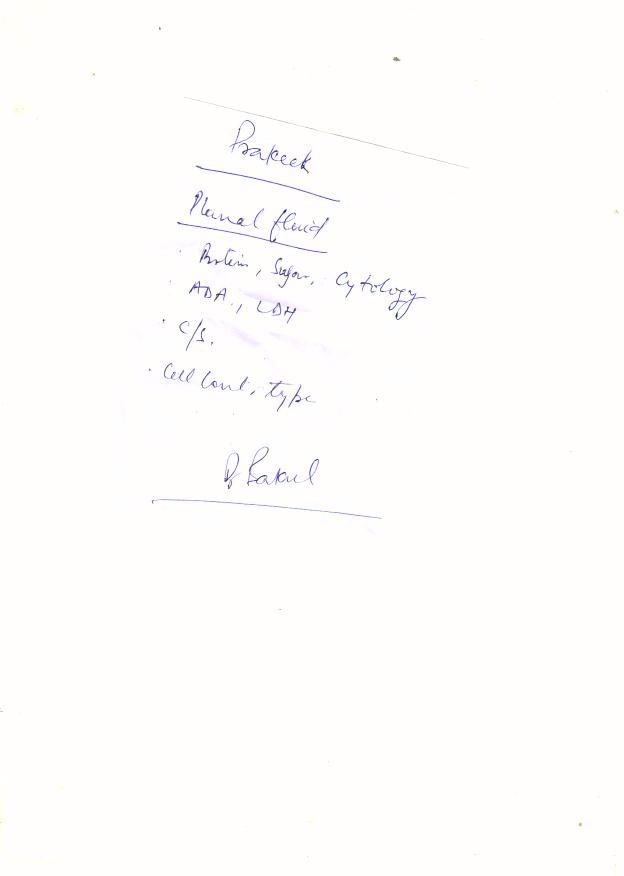 Prakeek
Plural fluid
· Protein, Sugar, Cytology
· ADA, LDH
· C/S.
· Cell Count, type
Dr Bakul